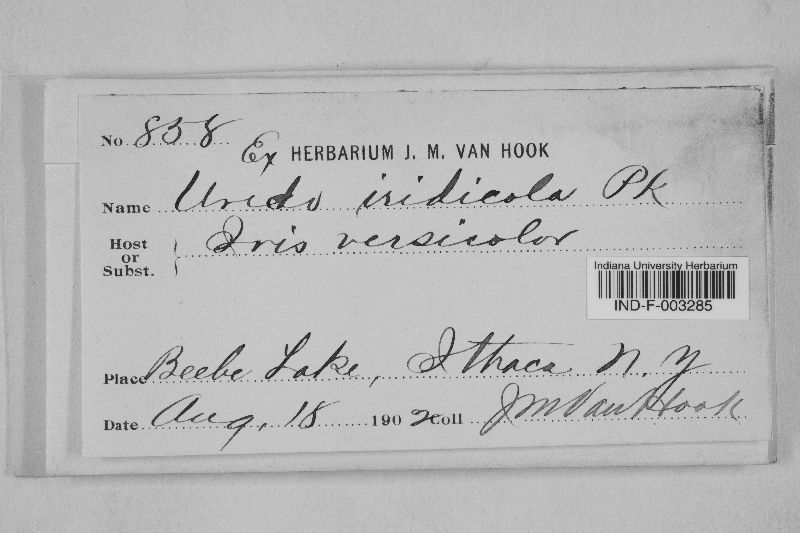 No 858
Ex HERBARIUM J. M. VAN HOOK
Name Uredo iridicola Pk
Host or Subst. { Iris versicolor
Indiana University Herbarium
IND-F-003285
Place Beebe Lake, Ithaca N. Y
Date Aug, 18 1902 Coll J M Van Hook